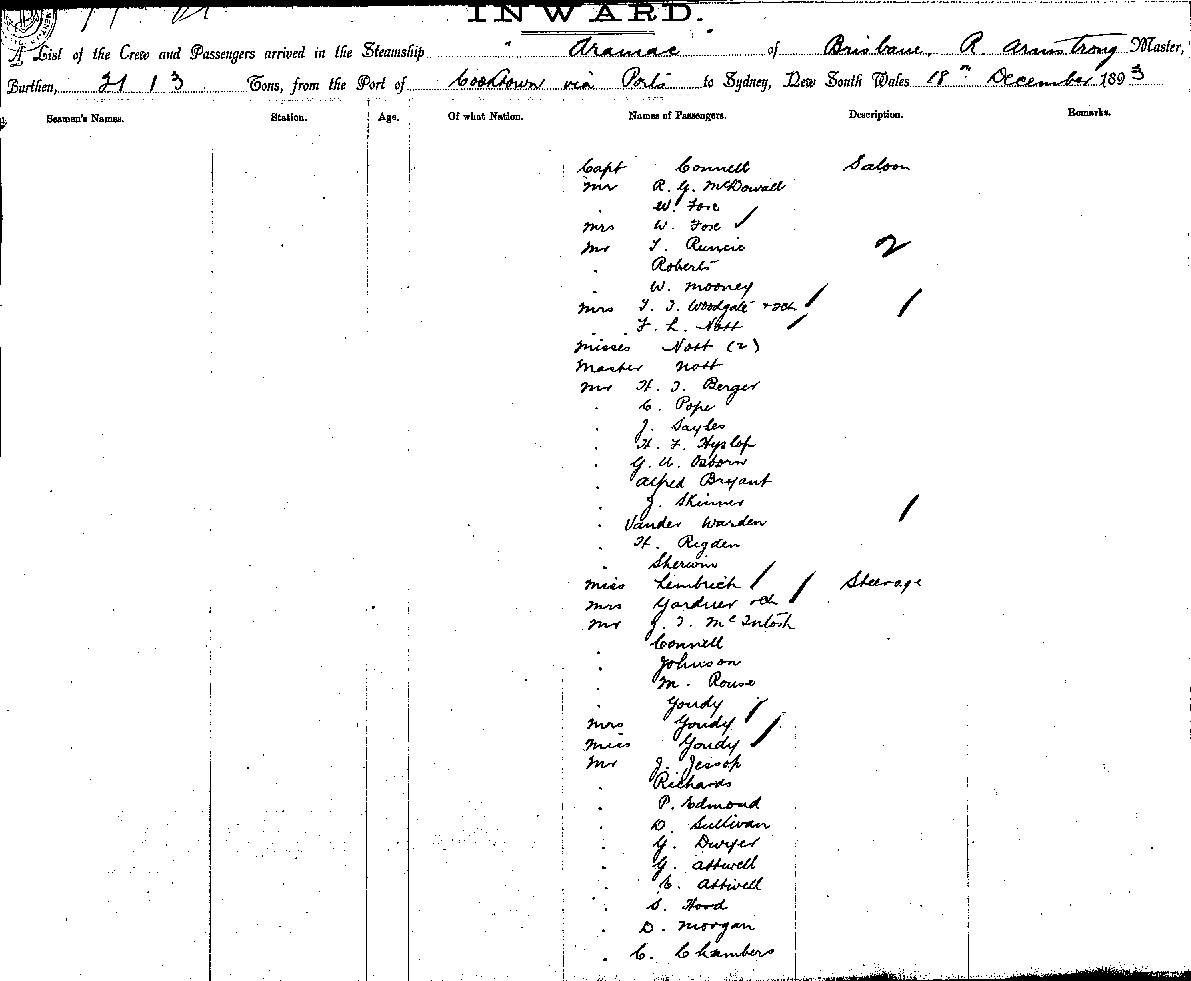 INWARD.
A List of the Crew and Passengers arrived in the Steamship "Aramac" of Brisbane, R. Armstrong Master,
Burthen, 21 1 3 Tons, from the Port of Cooktown via Ports to Sydney, New South Wales 18th December 1893
Seamen's Names. Station. Age. Of what Nation. Names of Passengers. Description. Remarks.
Capt Connell Saloon
Mr R. G. McDowall
. W. Foxe
Mrs W. Foxe /
Mr T. Runcie 2
. Roberts
. W. Mooney
Mrs T. J. Woodgate + 2ch / /
F. L. Nott /
Misses Nott (2)
Master Nott
Mr H. J. Berger
. C. Pope
. J. Sayles
. H. F. Hyslop
. G. A. Osborn
. Alfred Bryant
. J. Skinner /
. Vander Warden
. H. Rigden
. Sherwin
Miss Lembrich / Steerage
Mrs Gardner + ch /
Mr J. T. McIntosh
. Connell
. Johnson
. M. Rouse
. Goudy /
Mrs Goudy /
Miss Goudy /
Mr J. Jessop
. Richards
. P. Edmond
. D. Sullivan
. G. Dwyer
. G. Attwell
. E. Attwell
. S. Hood
. D. Morgan
. C. Chambers